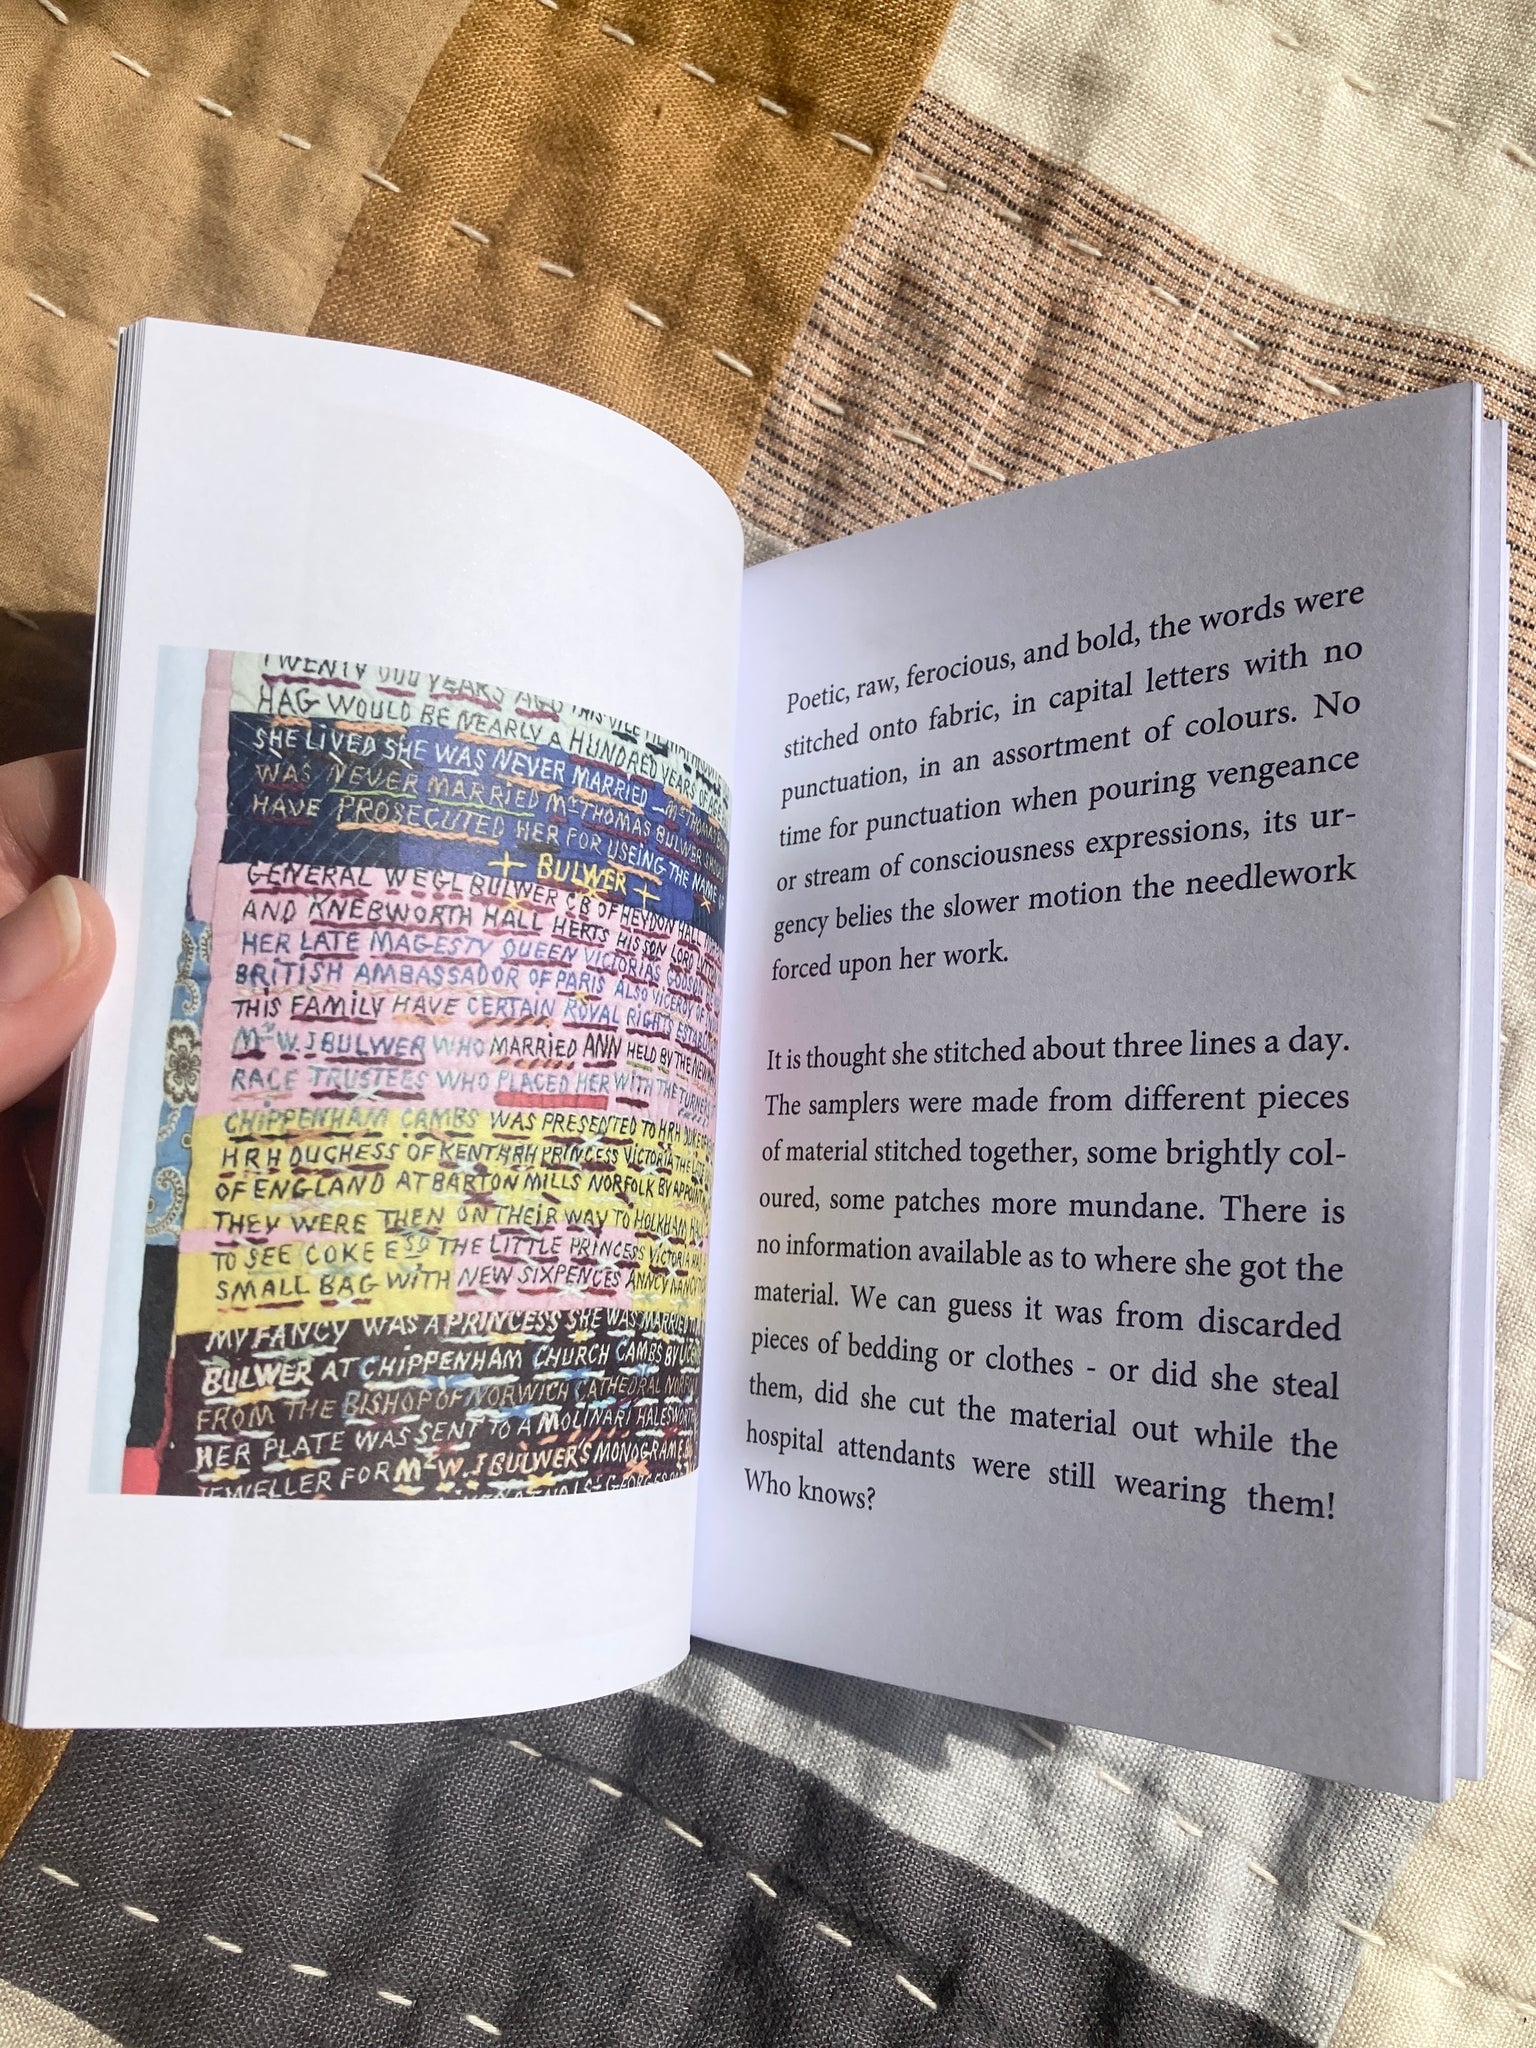 TWENTY YEARS AGO THIS VILE
HAG WOULD BE NEARLY A HUNDRED YEARS OF AGE
SHE LIVED SHE WAS NEVER MARRIED – Mr THOMAS
WAS NEVER MARRIED Mr THOMAS BULWER
HAVE PROSECUTED HER FOR USEING THE NAME OF
+ BULWER +
GENERAL WEGL BULWER CB OF HEYDON HALL
AND KNEBWORTH HALL HERTS HIS SON LORD LYTTON
HER LATE MAGESTY QUEEN VICTORIA'S GODSON
BRITISH AMBASSADOR OF PARIS ALSO VICEROY OF
THIS FAMILY HAVE CERTAIN ROYAL RIGHTS
Mr W.J BULWER WHO MARRIED ANN HELD BY THE
RACE TRUSTEES WHO PLACED HER WITH THE
CHIPPENHAM CAMBS WAS PRESENTED TO HRH
HRH DUCHESS OF KENT HRH PRINCESS VICTORIA THE
OF ENGLAND AT BARTON MILLS NORFOLK BY
THEY WERE THEN ON THEIR WAY TO HOLKHAM
TO SEE COKE ESQ THE LITTLE PRINCESS VICTORIA
SMALL BAG WITH NEW SIXPENCES
MY FANCY WAS A PRINCESS SHE WAS MARRIED
BULWER AT CHIPPENHAM CHURCH CAMBS BY
FROM THE BISHOP OF NORWICH CATHEDRAL
HER PLATE WAS SENT TO A MOLINARI HALESWORTH
JEWELLER FOR Mr W.J BULWER'S MONOGRAME
ST GEORGES
Poetic, raw, ferocious, and bold, the words were
stitched onto fabric, in capital letters with no
punctuation, in an assortment of colours. No
time for punctuation when pouring vengeance
or stream of consciousness expressions, its ur-
gency belies the slower motion the needlework
forced upon her work.
It is thought she stitched about three lines a day.
The samplers were made from different pieces
of material stitched together, some brightly col-
oured, some patches more mundane. There is
no information available as to where she got the
material. We can guess it was from discarded
pieces of bedding or clothes - or did she steal
them, did she cut the material out while the
hospital attendants were still wearing them!
Who knows?